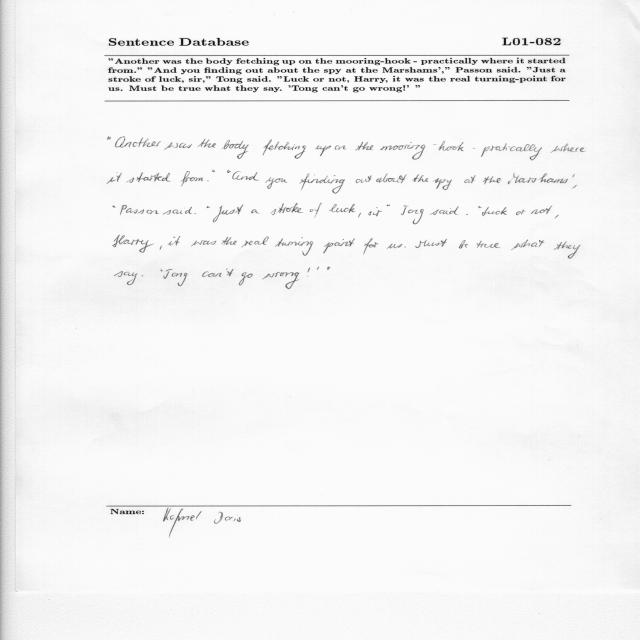 Sentence Database L01-082
"Another was the body fetching up on the mooring-hook - practically where it started
from." "And you finding out about the spy at the Marshams'," Passon said. "Just a
stroke of luck, sir," Tong said. "Luck or not, Harry, it was the real turning-point for
us. Must be true what they say. 'Tong can't go wrong!' "
"Another was the body fetching up on the mooring-hook - pratically where
it started from." "And you finding out about the spy at the Marshams',
"Passon said. "Just a stroke of luck, sir" Tong said. "Luck or not,
Harry, it was the real turning point for us. Must be true what they
say. 'Tong can't go wrong!'"
Name: Doris